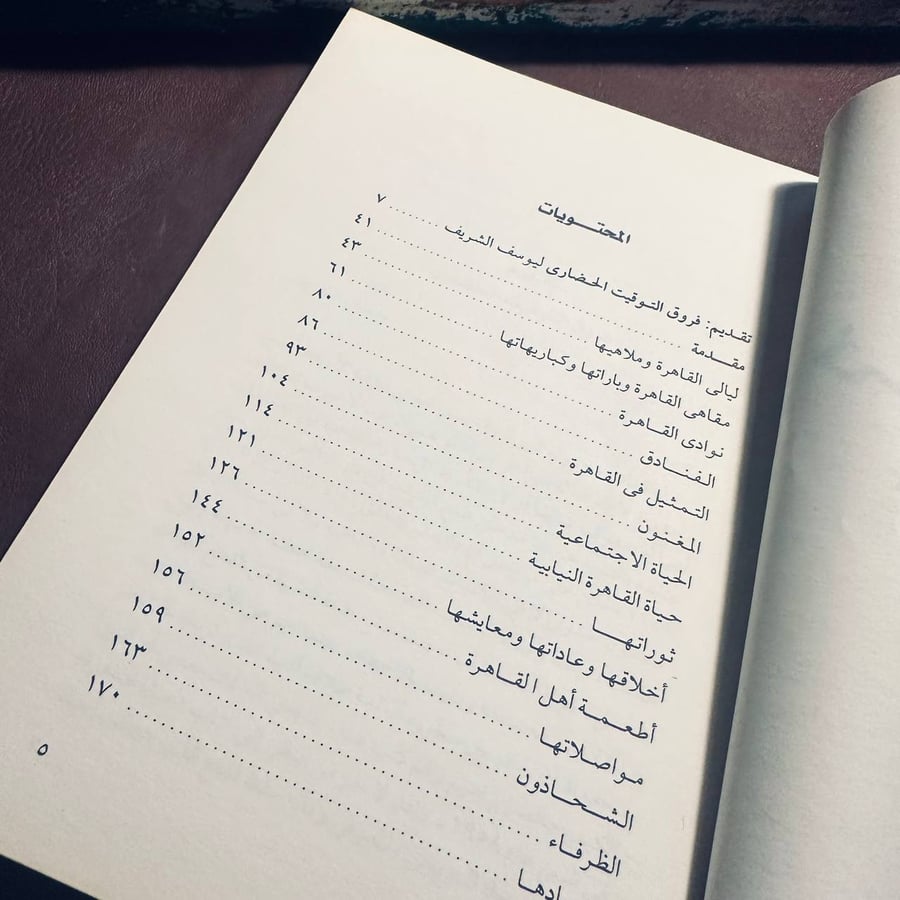 المحتويات
تقديم: فروق التوقيت الحضارى ليوسف الشريف ........ ٧
مقدمة ........ ٤١
ليالى القاهرة وملاهيها ........ ٤٣
مقاهى القاهرة وباراتها وكباريهاتها ........ ٦١
نوادى القاهرة ........ ٨٠
الفنادق ........ ٨٦
التمثيل فى القاهرة ........ ٩٣
المغنون ........ ١٠٤
الحياة الاجتماعية ........ ١١٤
حياة القاهرة النيابية ........ ١٢١
ثوراتها ........ ١٢٦
أخلاقها وعاداتها ومعايشها ........ ١٤٤
أطعمة أهل القاهرة ........ ١٥٢
مواصلاتها ........ ١٥٦
الشحاذون ........ ١٥٩
الظرفاء ........ ١٦٣
........ ١٧٠
٥